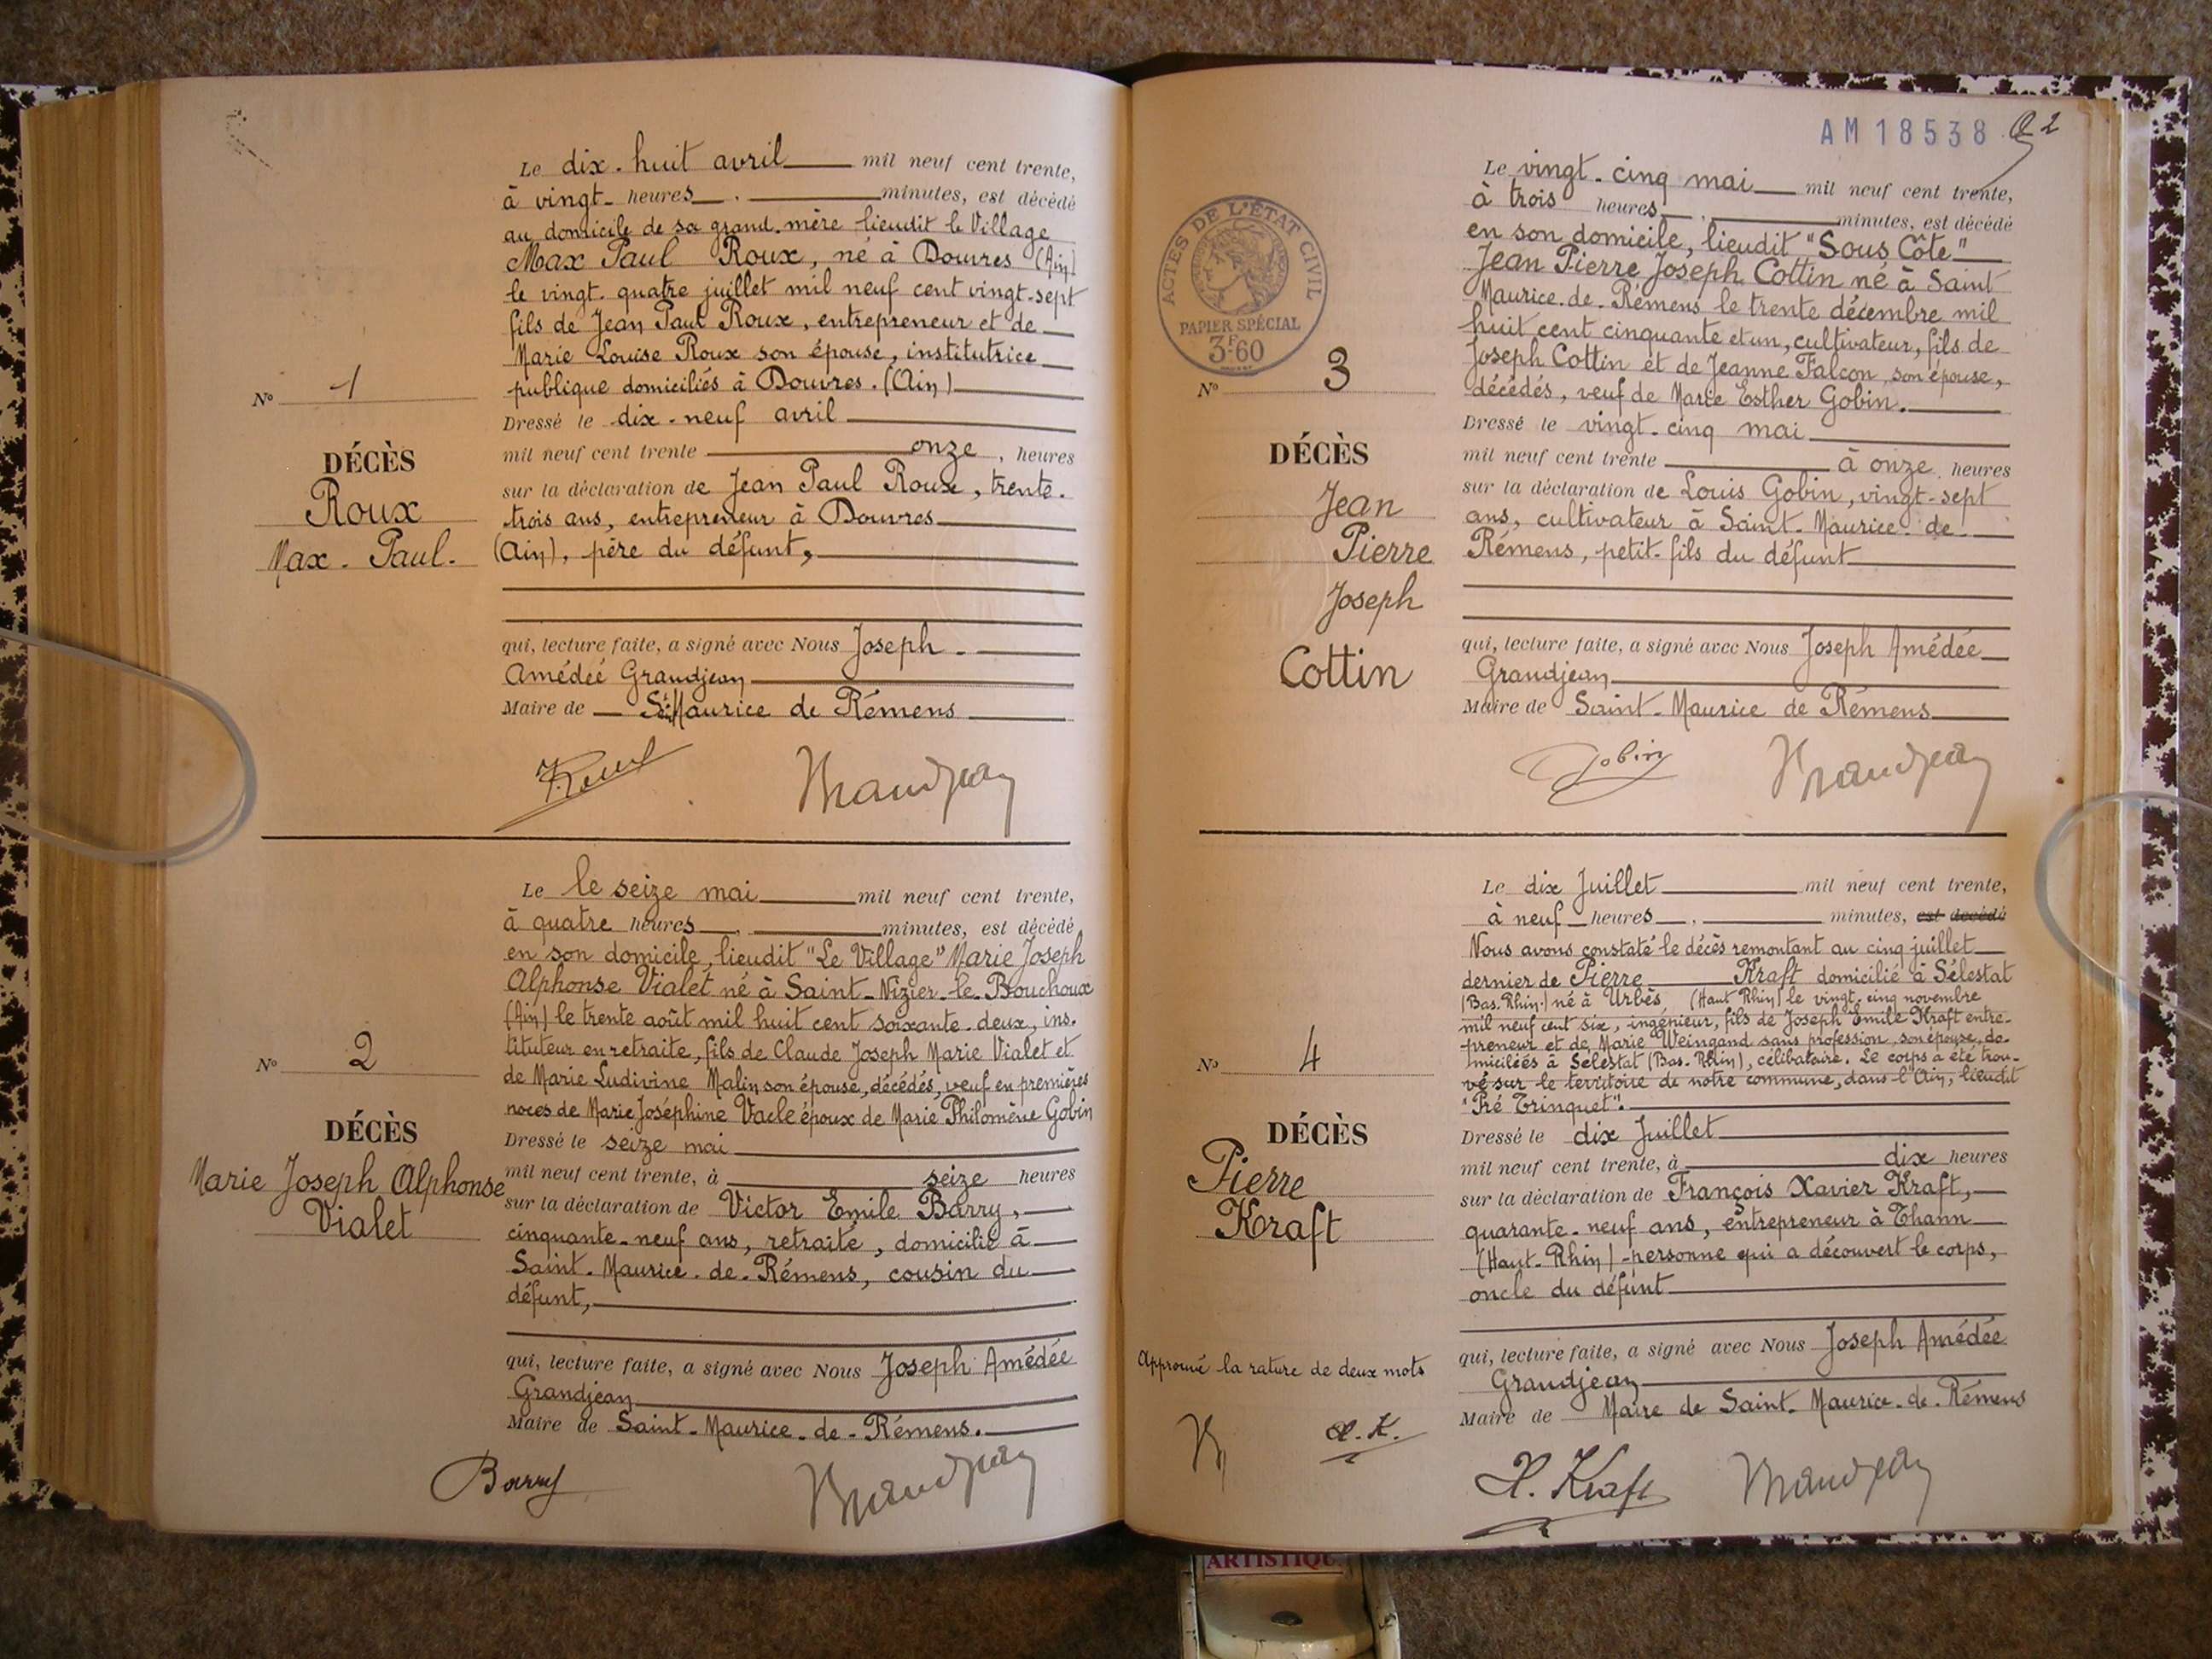 Le dix-huit avril mil neuf cent trente,
à vingt heures minutes, est décédé
au domicile de sa grand-mère lieudit le Village
Max Paul Roux, né à Douvres (Ain)
le vingt-quatre juillet mil neuf cent vingt-sept
fils de Jean Paul Roux, entrepreneur et de
Marie Louise Roux son épouse, institutrice
publique domiciliés à Douvres. (Ain)
Nº 1
Dressé le dix-neuf avril
mil neuf cent trente onze, heures
DÉCÈS
Roux
Max-Paul.
sur la déclaration de Jean Paul Roux, trente-
trois ans, entrepreneur à Douvres
(Ain), père du défunt,
qui, lecture faite, a signé avec Nous Joseph
Amédéé Grandjean
Maire de St Maurice de Rémens
Grandjean
Le le seize mai mil neuf cent trente,
à quatre heures minutes, est décédé
en son domicile, lieudit "Le Village" Marie Joseph
Alphonse Vialet né à Saint-Nizier-le-Bouchoux
(Ain) le trente août mil huit cent soixante-deux, ins-
tituteur en retraite, fils de Claude Joseph Marie Vialet et
de Marie Ludivine Malin son épouse, décédés, veuf en premières
noces de Marie Joséphine Vacle époux de Marie Philomène Gobin
Nº 2
Dressé le seize mai
mil neuf cent trente, à seize heures
DÉCÈS
Marie Joseph Alphonse
Vialet
sur la déclaration de Victor Emile Barry,
cinquante-neuf ans, retraité, domicilié à
Saint-Maurice-de-Rémens, cousin du
défunt,
qui, lecture faite, a signé avec Nous Joseph Amédée
Grandjean
Maire de Saint-Maurice-de-Rémens.
Barry Grandjean
AM 18538 2
ACTES DE L'ÉTAT CIVIL
PAPIER SPÉCIAL
3F60
Le vingt-cinq mai mil neuf cent trente,
à trois heures minutes, est décédé
en son domicile, lieudit "Sous Côte"
Jean Pierre Joseph Cottin né à Saint
Maurice-de-Rémens le trente décembre mil
huit cent cinquante et un, cultivateur, fils de
Joseph Cottin et de Jeanne Falcon, son épouse,
décédés, veuf de Marie Esther Gobin.
Nº 3
Dressé le vingt-cinq mai
mil neuf cent trente à onze heures
DÉCÈS
Jean
Pierre
Joseph
Cottin
sur la déclaration de Louis Gobin, vingt-sept
ans, cultivateur à Saint-Maurice-de-
Rémens, petit-fils du défunt
qui, lecture faite, a signé avec Nous Joseph Amédée
Grandjean
Maire de Saint-Maurice de Rémens
Gobin Grandjean
Le dix Juillet mil neuf cent trente,
à neuf heures minutes, est décédé
Nous avons constaté le décès remontant au cinq juillet
dernier de Pierre Kraft domicilié à Sélestat
(Bas-Rhin) né à Urbès (Haut Rhin) le vingt-cinq novembre
mil neuf cent six, ingénieur, fils de Joseph Emile Kraft entre-
preneur et de Marie Weingand sans profession, son épouse, do-
miciliés à Sélestat (Bas-Rhin), célibataire. Le corps a été trou-
vé sur le territoire de notre commune, dans l'Ain, lieudit
"Pré Trinquet".
Nº 4
Dressé le dix Juillet
mil neuf cent trente, à dix heures
DÉCÈS
Pierre
Kraft
sur la déclaration de François Xavier Kraft,
quarante-neuf ans, entrepreneur à Thann
(Haut-Rhin) personne qui a découvert le corps,
oncle du défunt
qui, lecture faite, a signé avec Nous Joseph Amédée
Grandjean
Maire de Maire de Saint-Maurice-de-Rémens
Approuvé la rature de deux mots
X. K.
X. Kraft Grandjean
ARTISTIQU